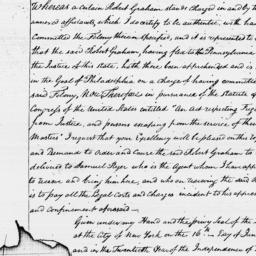 Whereas a certain Robert Graham stands charged in and by t
annexed affidavits, which I do certify to be authentic, with hav
Committed the Felony therein specified, and it is represented t
that the said Robert Graham, having fled to the Pennsylvania
the Justice of this state, hath there been apprehended and is
in the Goal of Philadelphia on a charge of having committe
said Felony, Now Therefore in pursuance of the Statute o
Congress of the United States entitled "An act respecting Fugi
from Justice, and persons escaping from the service of the
Masters" I request that your Excellency will be pleased on this
and Demand to order and Cause the said Robert Graham to
delivered to Samuel who is the Agent whom I have app
to receive and bring him here, and who on receiving the said
is to pay all the Legal costs and charges incident to his appre
and confinement aforesaid
Given under my Hand and the privy Seal of the
at the City of New York on the 16th Day of
and in the Twentieth Year of the Independence of